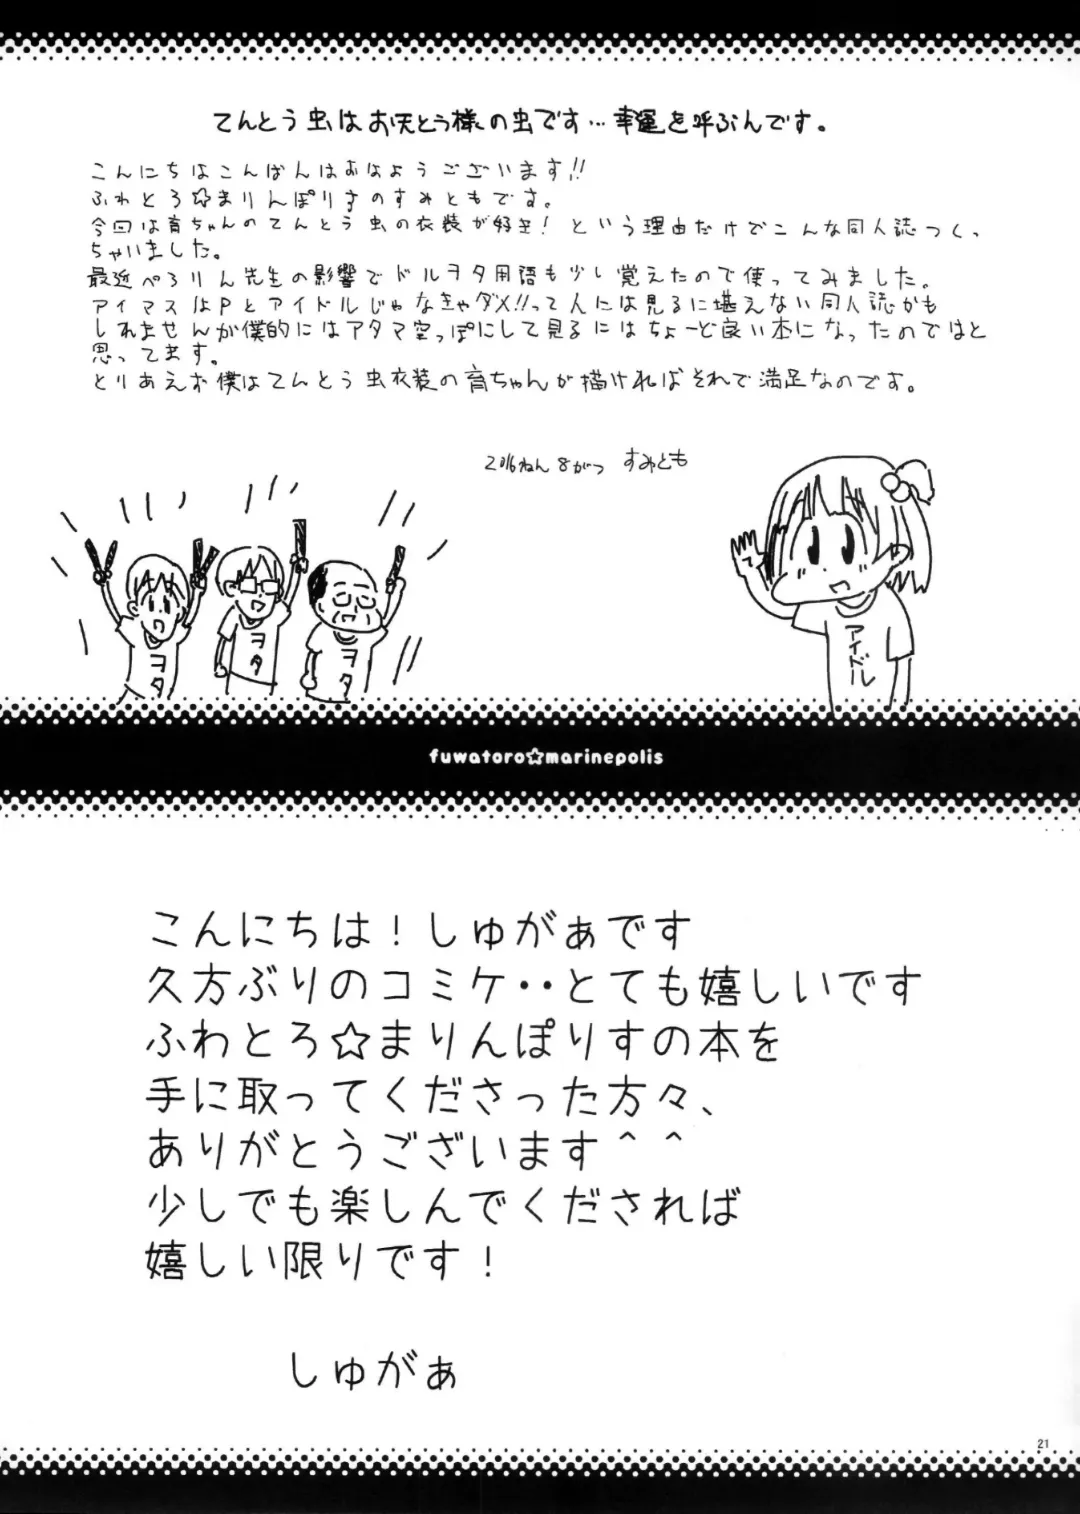 てんとう虫はお天とう様の虫です…幸運を呼ぶんです。
こんにちはこんばんはおはようございます!!
ふわとろ☆まりんぽりすのすみともです。
今回は育ちゃんのてんとう虫の衣装が好き! という理由だけでこんな同人誌つくっ
ちゃいました。
最近ぺろりん先生の影響でドルヲタ用語も少し覚えたので使ってみました。
アイマスはPとアイドルじゃなきゃダメ!!って人には見るに堪えない同人誌かも
しれませんが僕的にはアタマ空っぽにして見るにはちょーど良い本になったのではと
思ってます。
とりあえず僕はてんとう虫衣装の育ちゃんが描ければそれで満足なのです。
2016ねん8がつ すみとも
ヲタ
ヲタ
ヲタ
アイドル
fuwatoro☆marinepolis
こんにちは!しゅがぁです
久方ぶりのコミケ・・とても嬉しいです
ふわとろ☆まりんぽりすの本を
手に取ってくださった方々、
ありがとうございます＾＾
少しでも楽しんでくだされば
嬉しい限りです!
しゅがぁ
21